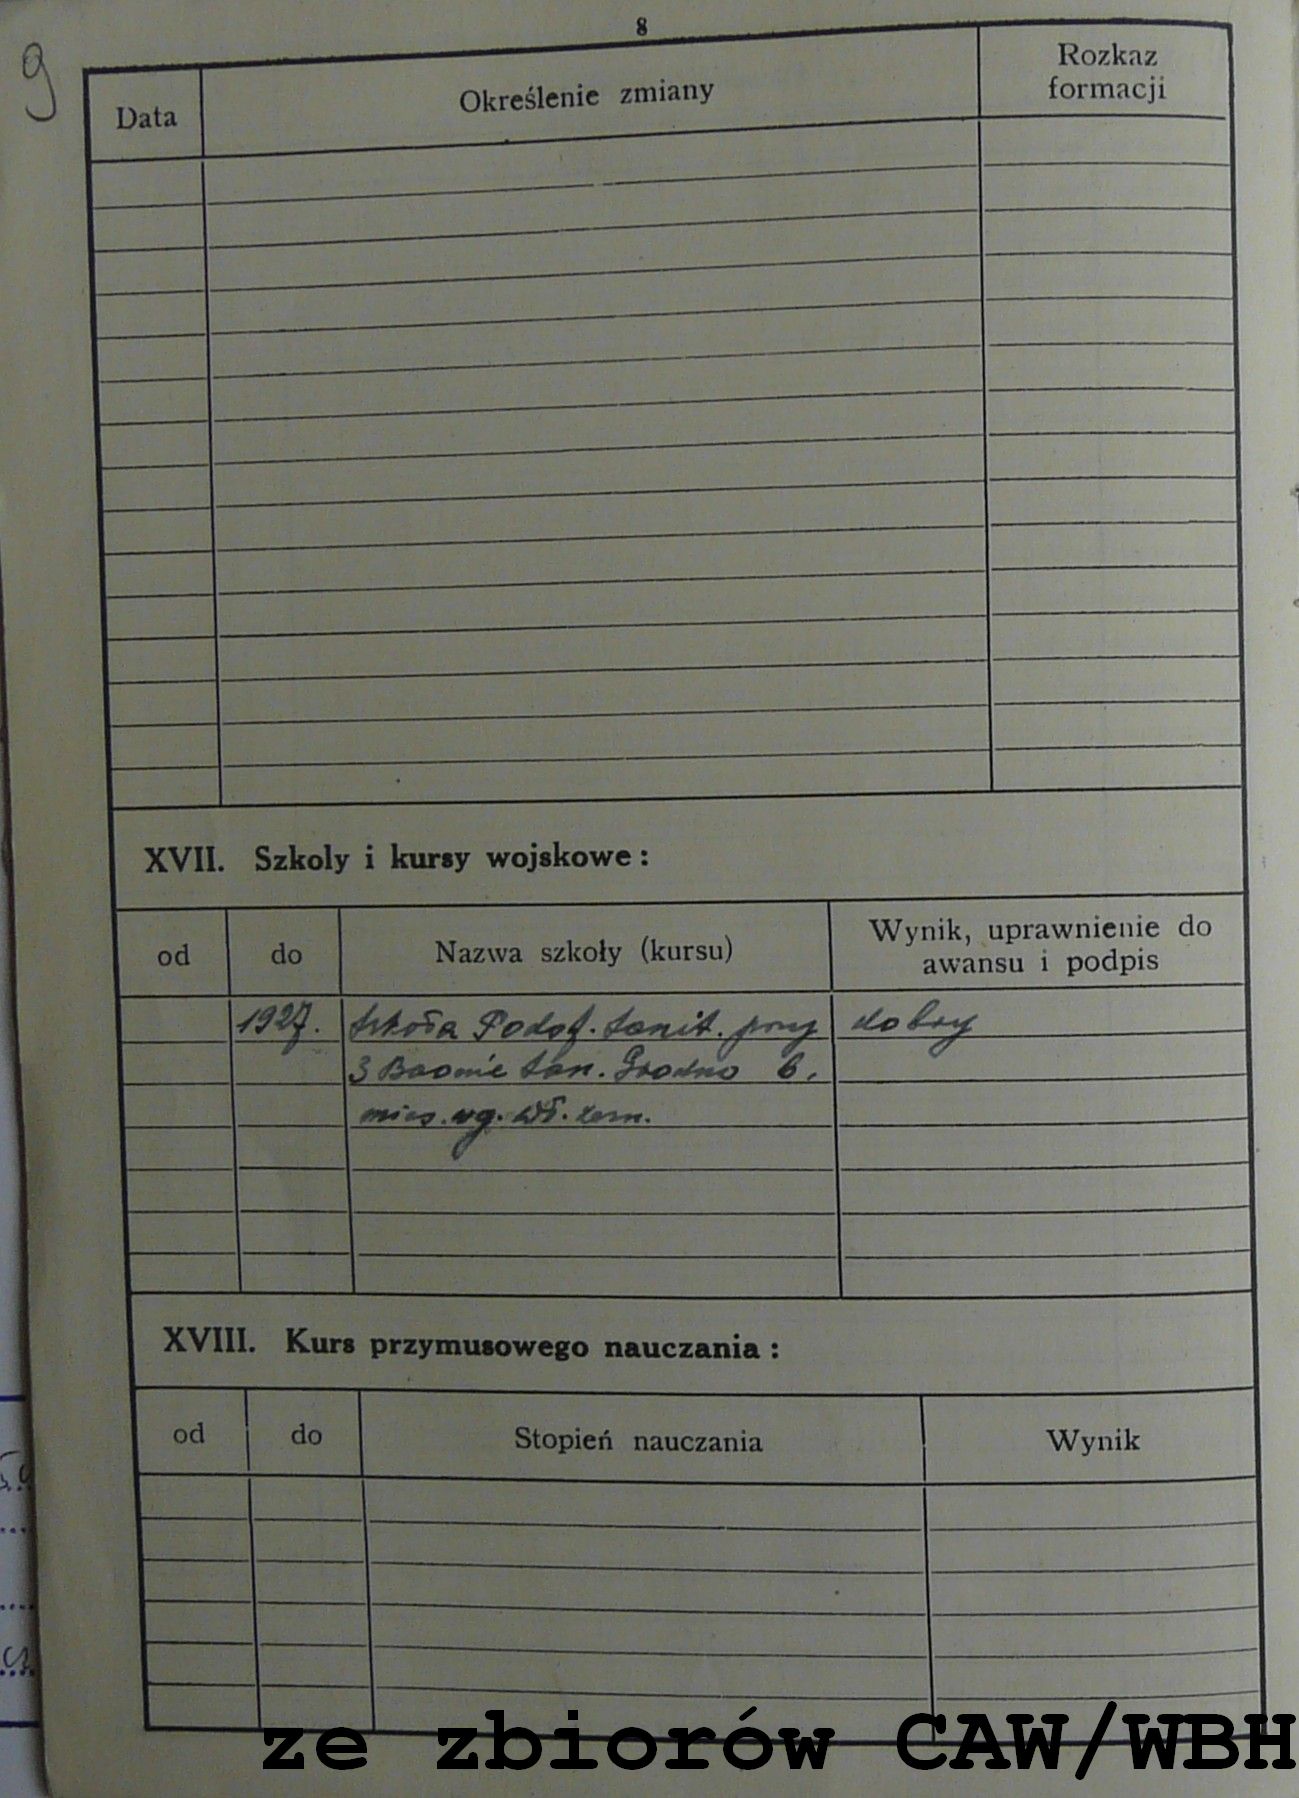 9
8
Data Określenie zmiany Rozkaz formacji
XVII. Szkoły i kursy wojskowe:
od do Nazwa szkoły (kursu) Wynik, uprawnienie do awansu i podpis
1927. Szkoła Podof. sanit. przy dobry
3 Baonie San. Grodno 6.
mies. wg. wł. zezn.
XVIII. Kurs przymusowego nauczania:
od do Stopień nauczania Wynik
ze zbiorów CAW/WBH